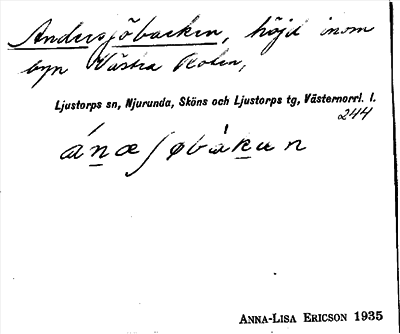 Andersjöbacken, höjd inom
byn Västra Roten,
Ljustorps sn, Njurunda, Sköns och Ljustorps tg, Västernorrl. l.
244
ánæʃøbàkun
ANNA-LISA ERICSON 1935